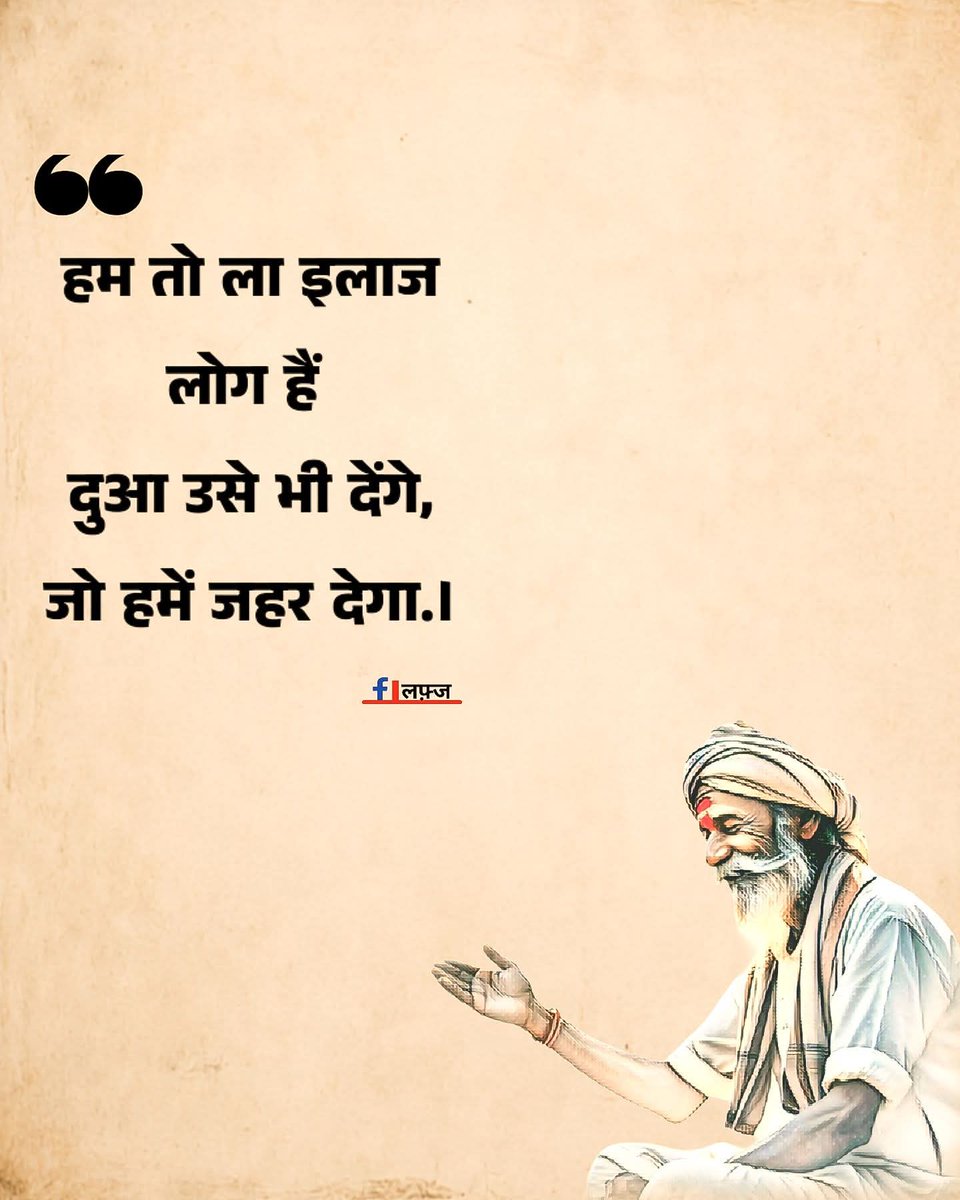 ❝
हम तो ला इलाज
लोग हैं
दुआ उसे भी देंगे,
जो हमें जहर देगा.।
f|लफ़्ज